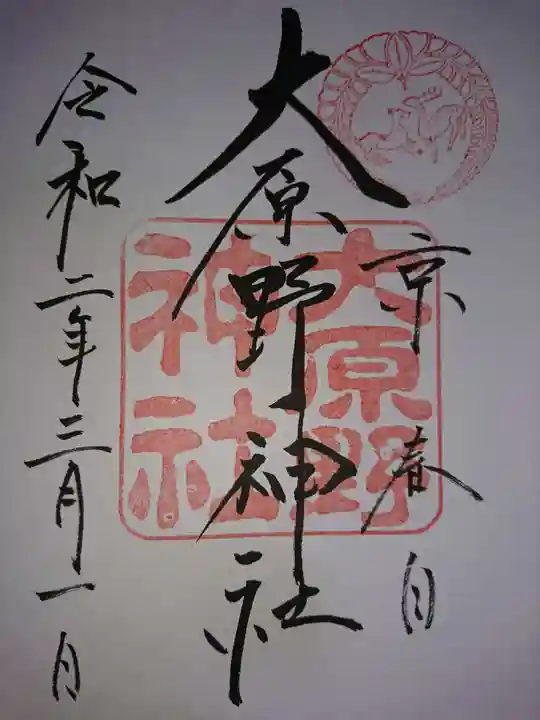 京春日
大原野神社
令和二年三月一日
大原野
神社